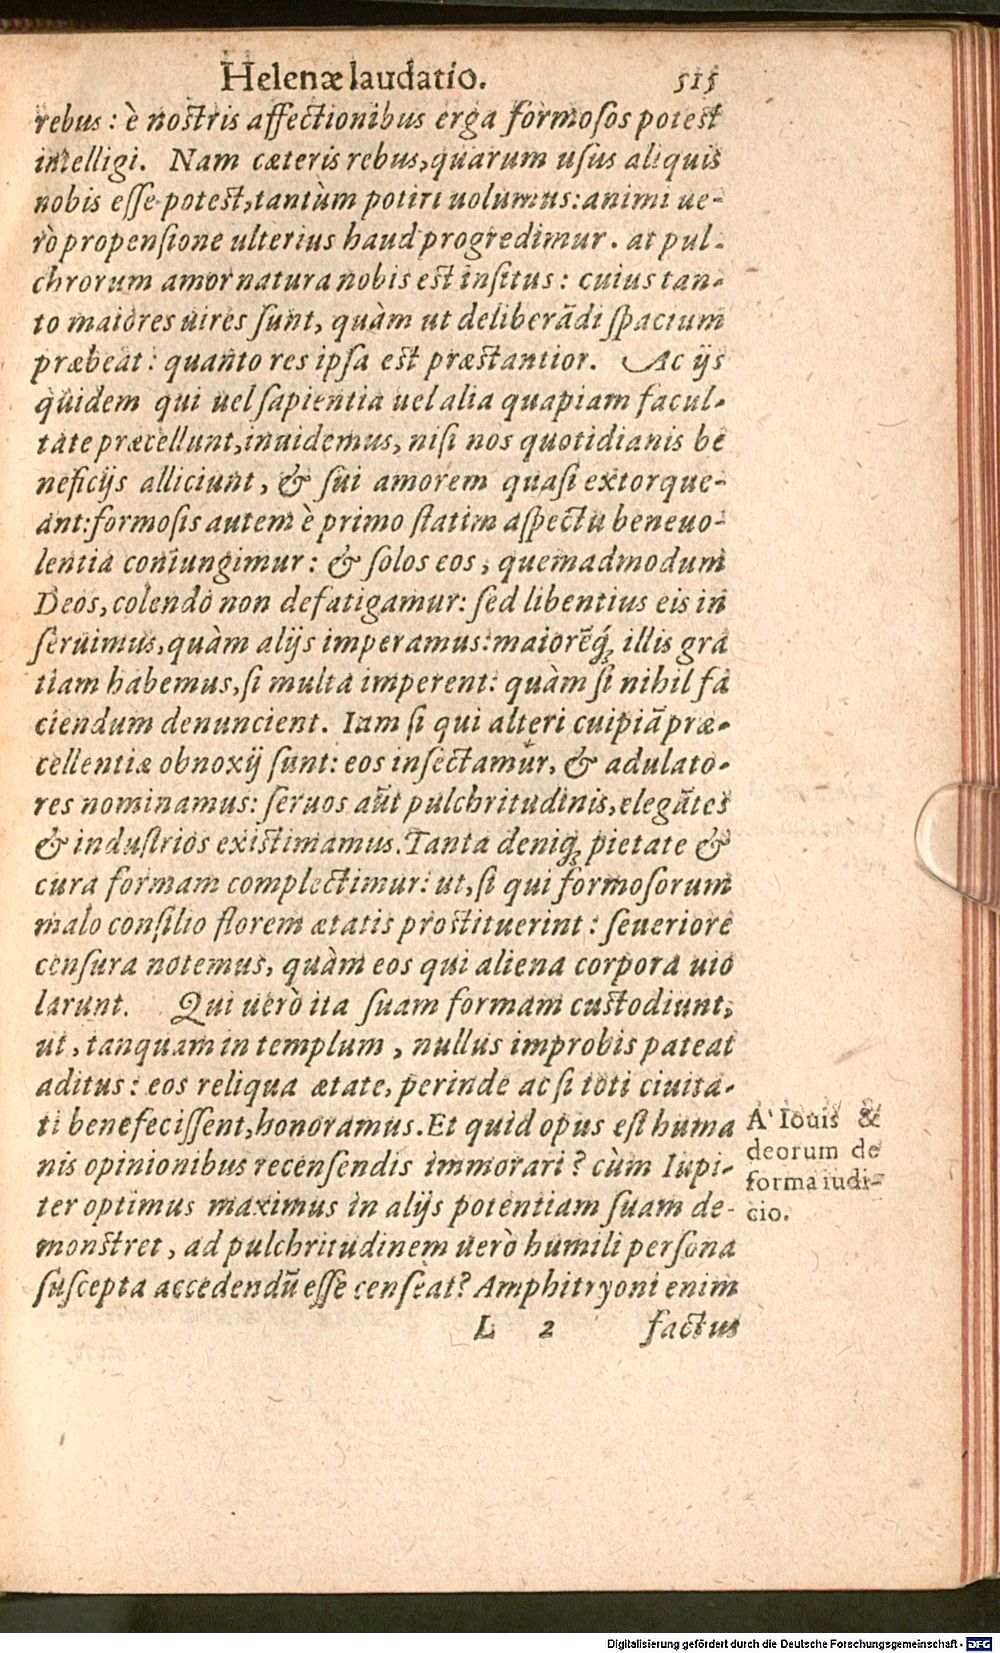 Helenæ laudatio. 515
rebus: è nostris affectionibus erga formosos potest
intelligi. Nam cæteris rebus, quarum usus aliquis
nobis esse potest, tantùm potiri uolumus: animi ue-
rò propensione ulterius haud progredimur. at pul-
chrorum amor natura nobis est insitus: cuius tan-
to maiores uires sunt, quàm ut deliberãdi spacium
præbeat: quanto res ipsa est præstantior. Ac ijs
quidem qui uel sapientia uel alia quapiam facul-
tate præcellunt, inuidemus, nisi nos quotidianis be
neficijs alliciunt, & sui amorem quasi extorque-
ant: formosis autem è primo statim aspectu beneuo-
lentia coniungimur: & solos eos, quemadmodum
Deos, colendo non defatigamur: sed libentius eis in
seruimus, quàm alijs imperamus: maiorẽq́; illis gra
tiam habemus, si multa imperent: quàm si nihil fa
ciendum denuncient. Iam si qui alteri cuipiã præ-
cellentiæ obnoxij sunt: eos insectamur, & adulato-
res nominamus: seruos aũt pulchritudinis, elegãtes
& industrios existimamus. Tanta deniq; pietate &
cura formam complectimur: ut, si qui formosorum
malo consilio florem ætatis prostituerint: seueriore
censura notemus, quàm eos qui aliena corpora uio
larunt. Qui uerò ita suam formam custodiunt,
ut, tanquam in templum, nullus improbis pateat
aditus: eos reliqua ætate, perinde ac si toti ciuita-
ti benefecissent, honoramus. Et quid opus est huma
nis opinionibus recensendis immorari? cùm Iupi-
ter optimus maximus in alijs potentiam suam de-
monstret, ad pulchritudinem uerò humili persona
suscepta accedendũ esse censeat? Amphitryoni enim
L 2 factus
A' Iouis &
deorum de
forma iudi-
cio.
Digitalisierung gefördert durch die Deutsche Forschungsgemeinschaft - DFG